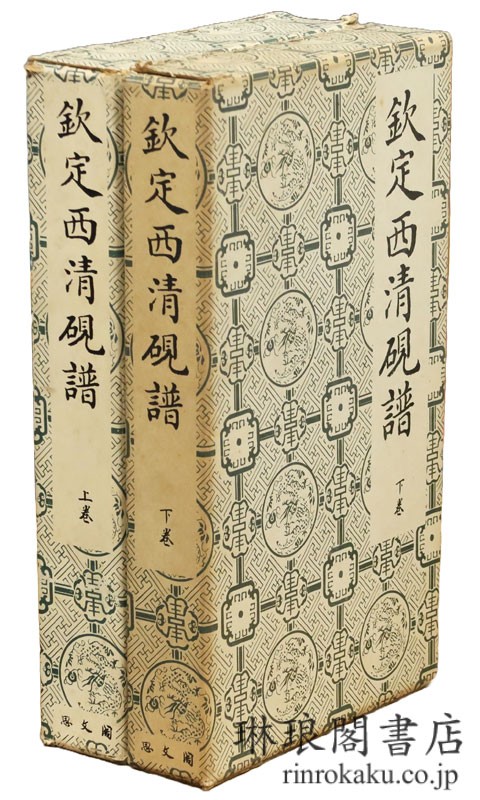 欽定西清硯譜
上巻
思文閣
欽定西清硯譜
下巻
思文閣
欽定西清硯譜
下巻
琳琅閣書店
rinrokaku.co.jp